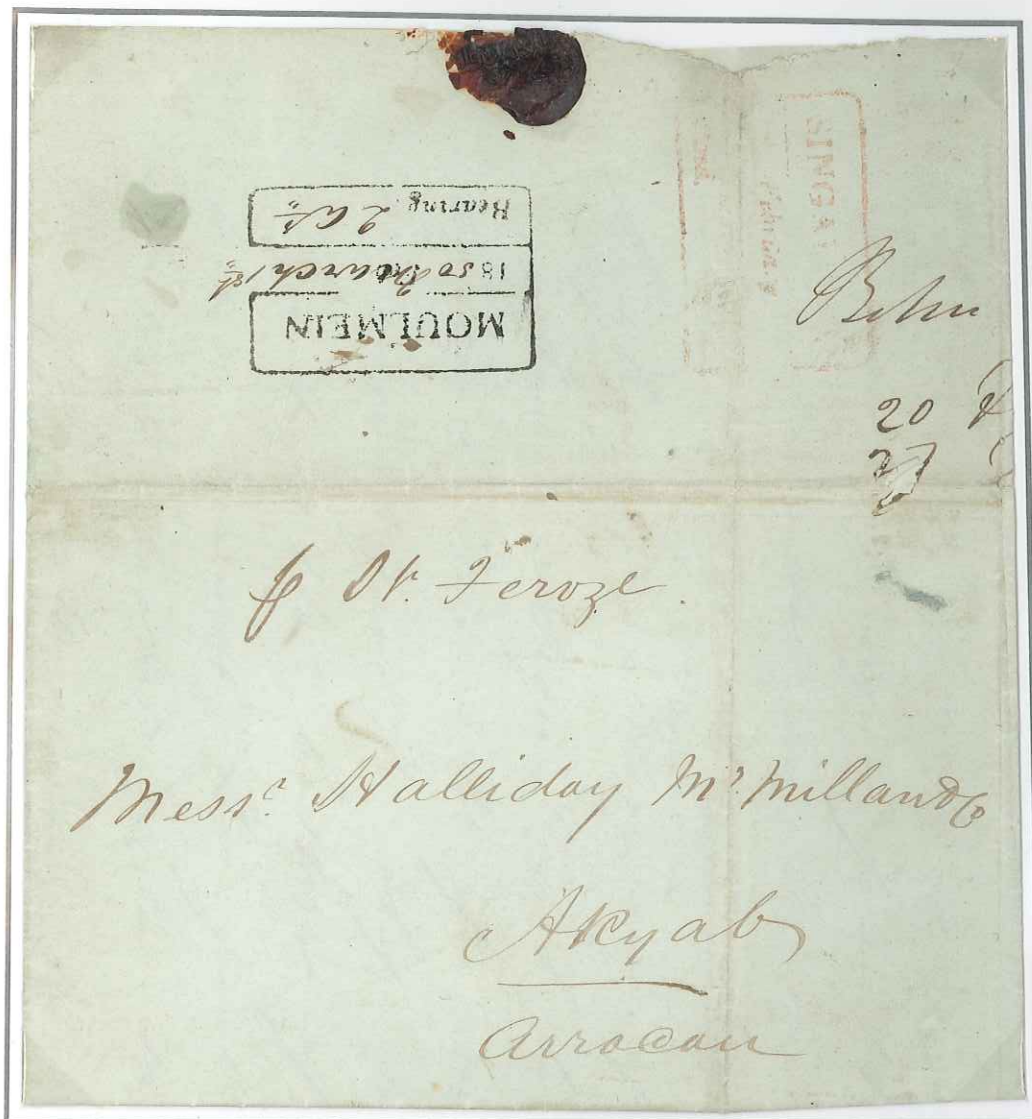 MOULMEIN
1850 March 1st
Bearing 2 as
SINGA
20
27
p St. Feroze.
Messrs. Halliday Mc.Milland & Co
Akyab
Arracan